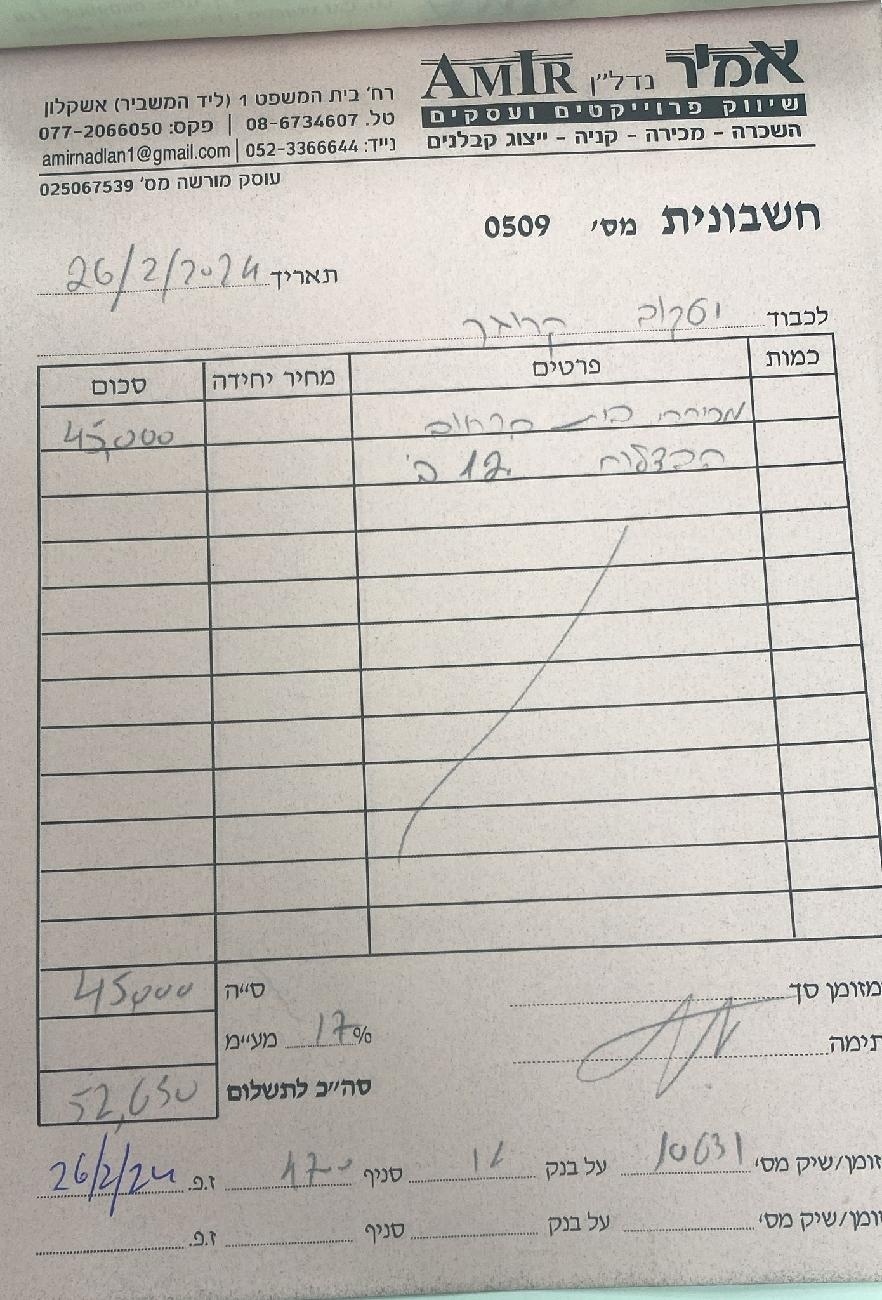 אמיר נדל״ן AMIR
שיווק פרוייקטים ועסקים
השכרה - מכירה - קניה - ייצוג קבלנים
רח׳ בית המשפט 1 (ליד המשביר) אשקלון
טל. 08-6734607 | פקס: 077-2066050
נייד: 052-3366644 | amirnadlan1@gmail.com
עוסק מורשה מס׳ 025067539
חשבונית מס׳ 0509
תאריך 26/2/2024
לכבוד יעקוב
כמות פרטים מחיר יחידה סכום
מכירת בית ברחוב 45,000
12 ב׳
סי״ה 45000
מע״מ 17%
סה״כ לתשלום 52,650
מזומן סך
תימה
זומן/שיק מס׳ 10631 על בנק 12 סניף ז.פ. 26/2/24
זומן/שיק מס׳ על בנק סניף ז.פ.